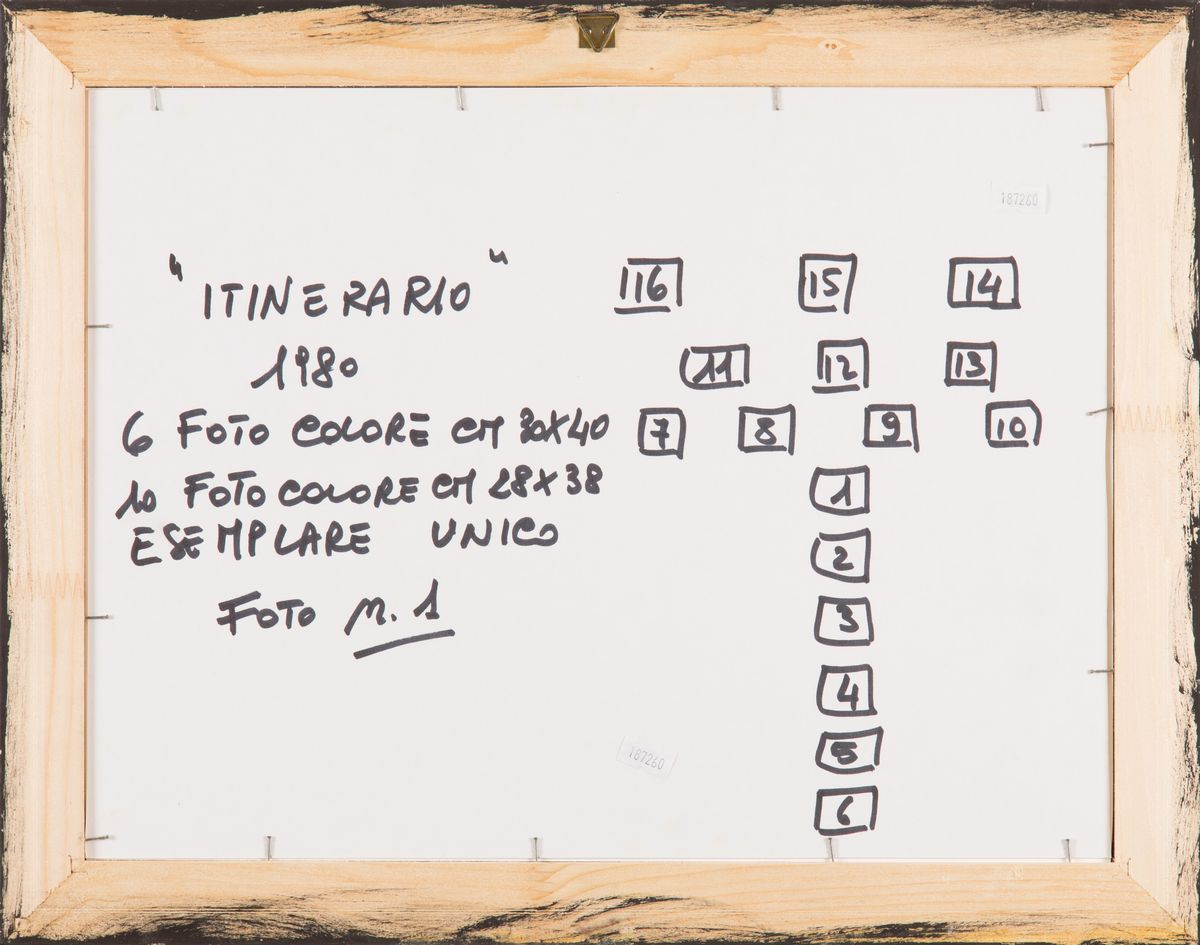 187260
"ITINERARIO"
16 15 14
1980
11 12 13
6 FOTO COLORE CM 30X40
7 8 9 10
10 FOTO COLORE CM 28X38
1
ESEMPLARE UNICO
2
FOTO N. 1
3
4
5
6
187260